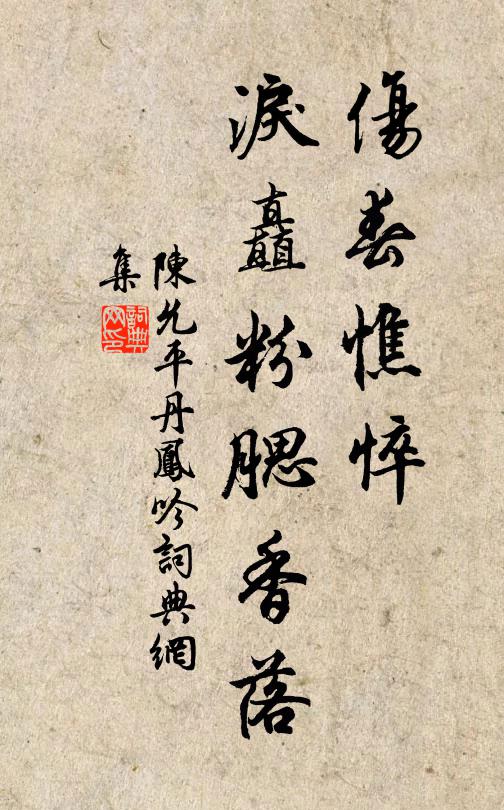 傷春憔悴
淚矗粉腮香落
陳允平丹鳳吟詞典網
集
詞典网印